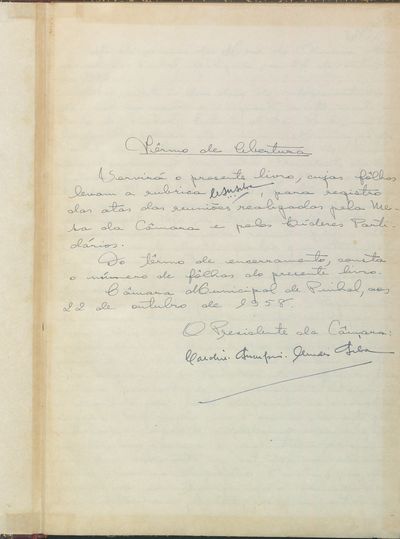 Têrmo de Abertura
Servirá o presente livro, cujas fôlhas
levam a rubrica , para registro
das atas das reuniões realizadas pela Me-
sa da Câmara e pelos Líderes Parti-
dários.
Do têrmo de encerramento, consta
o número de fôlhas do presente livro.
Câmara Municipal de Pinhal, aos
22 de outubro de 1958.
O Presidente da Câmara: